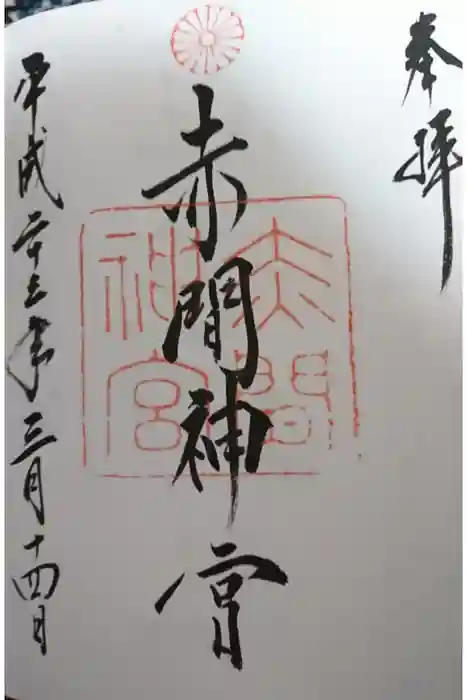 奉拝
赤間神宮
赤間
神宮
平成二十三年三月十四日